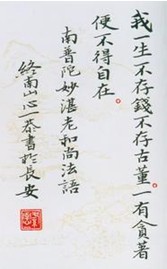 我生不存錢不存古董一有貪著
便不得自在。
南普陀妙湛老和尚法語
終南山心一恭書於長安